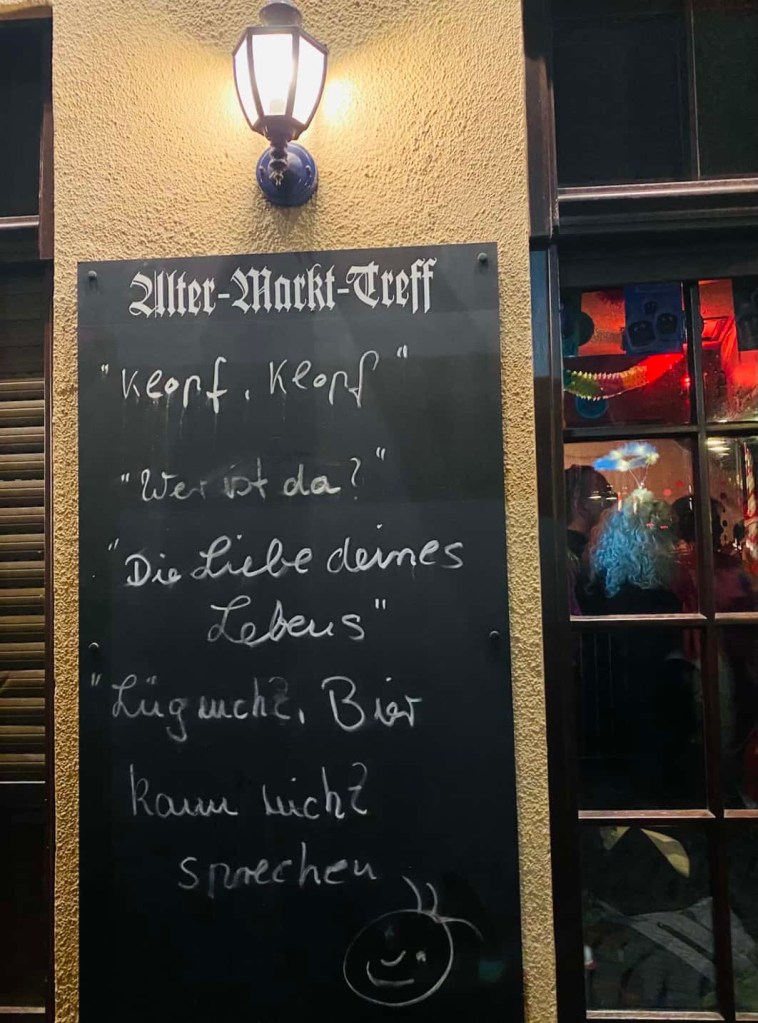 Alter-Markt-Treff
"Klopf, Klopf"
"Wer ist da?"
"Die Liebe deines
Lebens"
"Lüg nicht, Bier
kann nicht
sprechen